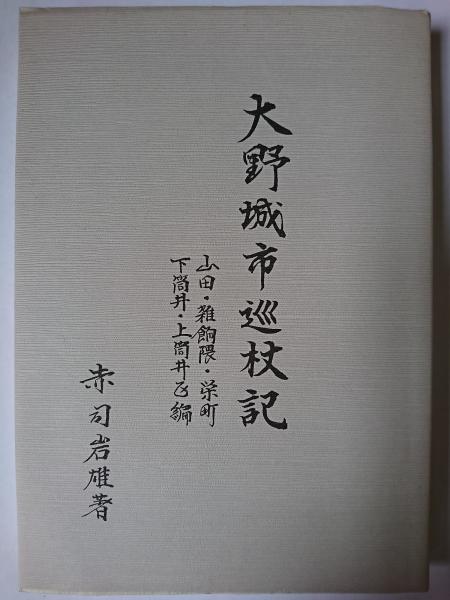 大野城市巡杖記
山田・雑餉隈・栄町
下筒井・上筒井区編
赤司岩雄著